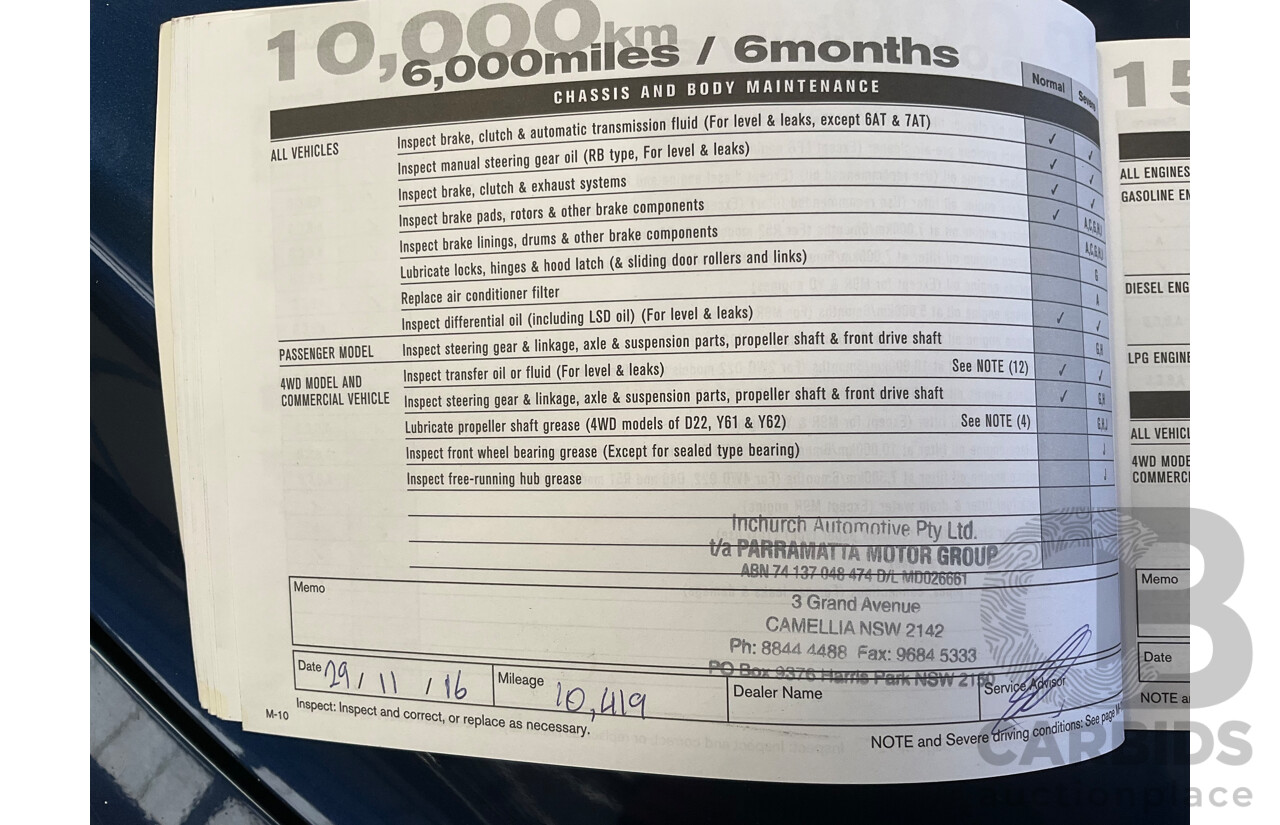 10,000km
6,000miles / 6months
CHASSIS AND BODY MAINTENANCE
Normal
Severe
ALL VEHICLES
Inspect brake, clutch & automatic transmission fluid (For level & leaks, except 6AT & 7AT) ✓ ✓
Inspect manual steering gear oil (RB type, For level & leaks) ✓ ✓
Inspect brake, clutch & exhaust systems ✓ ✓
Inspect brake pads, rotors & other brake components ✓
Inspect brake linings, drums & other brake components
Lubricate locks, hinges & hood latch (& sliding door rollers and links) G
Replace air conditioner filter A
Inspect differential oil (including LSD oil) (For level & leaks) ✓ ✓
PASSENGER MODEL
Inspect steering gear & linkage, axle & suspension parts, propeller shaft & front drive shaft G,H
4WD MODEL AND
COMMERCIAL VEHICLE
Inspect transfer oil or fluid (For level & leaks) See NOTE (12) ✓ ✓
Inspect steering gear & linkage, axle & suspension parts, propeller shaft & front drive shaft ✓ G,H
Lubricate propeller shaft grease (4WD models of D22, Y61 & Y62) See NOTE (4) G,H,J
Inspect front wheel bearing grease (Except for sealed type bearing) J
Inspect free-running hub grease J
Inchurch Automotive Pty Ltd.
t/a PARRAMATTA MOTOR GROUP
ABN 74 137 048 474 D/L MD026661
3 Grand Avenue
CAMELLIA NSW 2142
Ph: 8844 4488 Fax: 9684 5333
PO Box 9376 Harris Park NSW 2150
Memo
Date 29/11/16
Mileage 10,419
Dealer Name
Service Advisor
M-10
Inspect: Inspect and correct, or replace as necessary.
NOTE and Severe driving conditions: See page M-
15
ALL ENGINES
GASOLINE EN
DIESEL ENG
LPG ENGINE
ALL VEHICL
4WD MODE
COMMERC
Memo
Date
NOTE a
CARBIDS
auctionplace